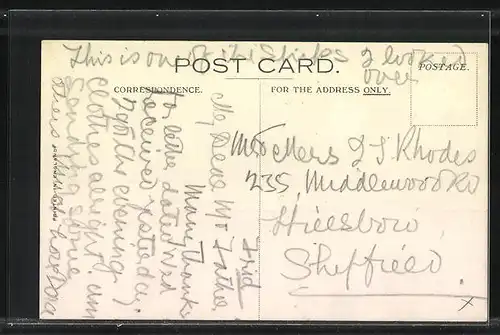 This is one of the ships I looked
over
POST CARD.
POSTAGE.
CORRESPONDENCE.
FOR THE ADDRESS ONLY.
Frid
My Dear Mo & Father
Many thanks
for letter dated Wed
received yesterday
I got the evening
clothes alright am
sending some
others
love
Mr & Mrs J. Rhodes
235, Middlewood Rd
Hillsboro,
Sheffield.
x